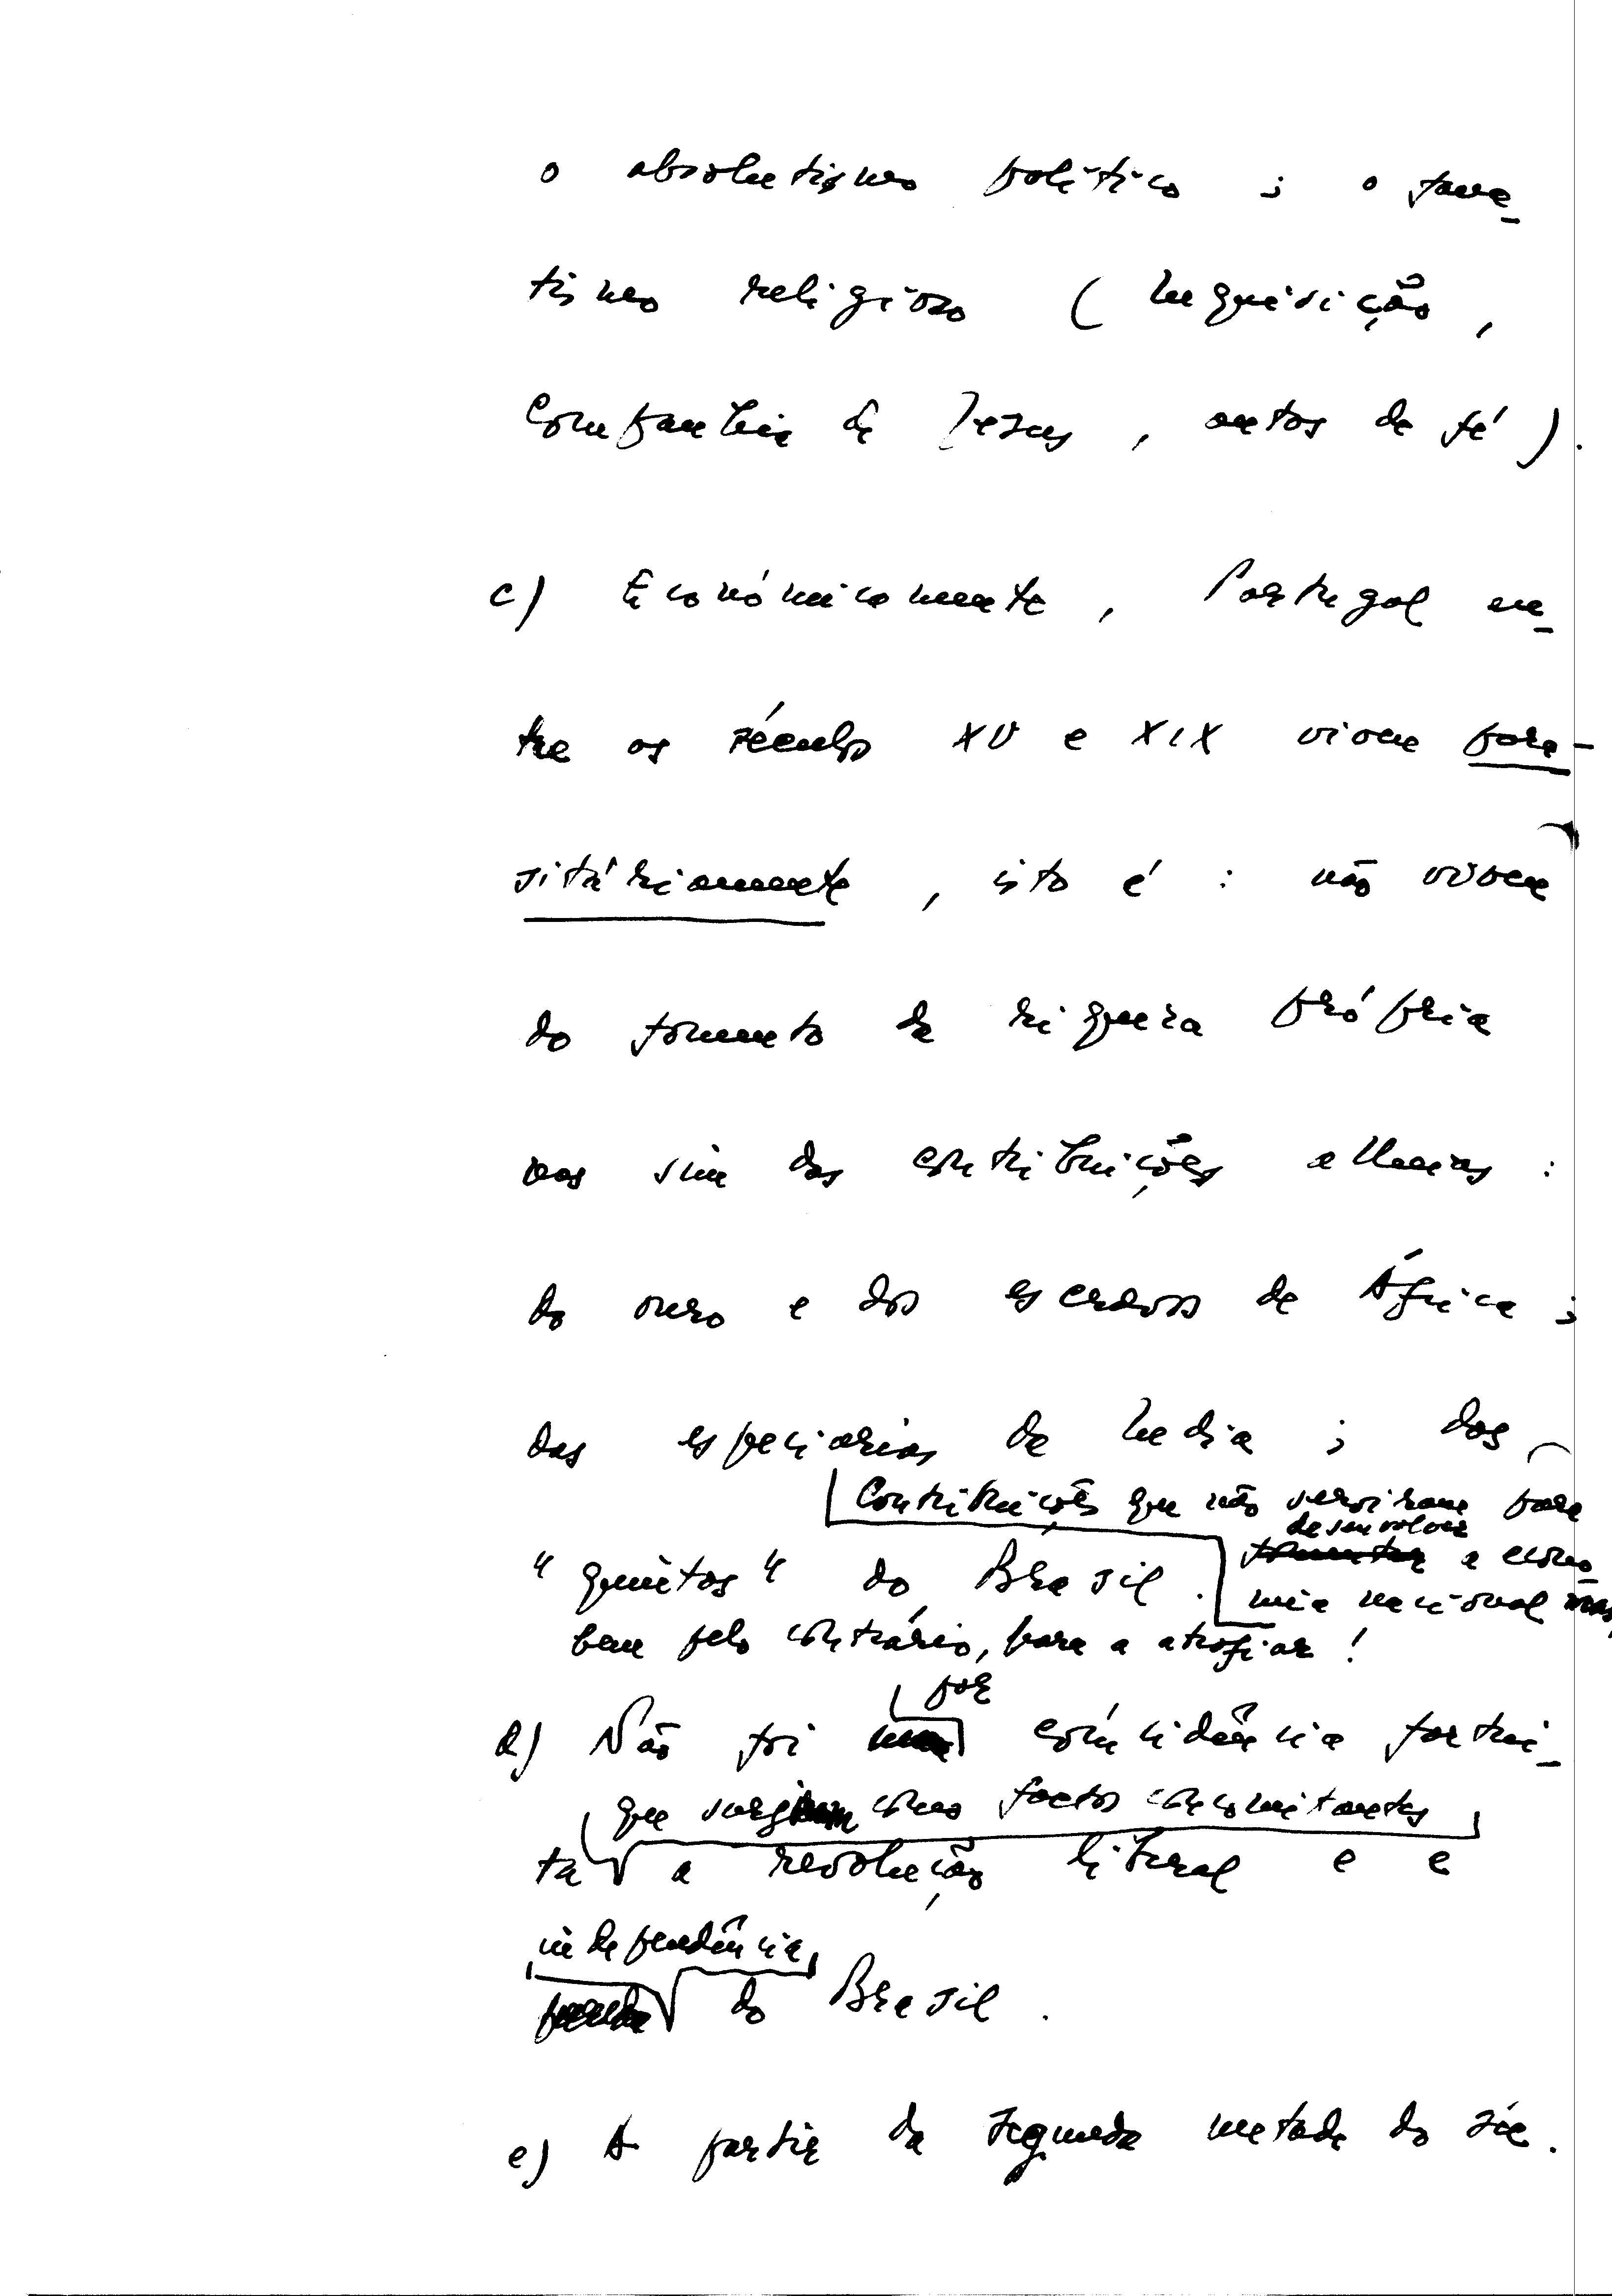 o absolutismo político ; o fana-
tismo religioso ( Inquisição ,
Companhia de Jesus , autos de fé ) .
c) Económicamente , Portugal en-
tre os séculos XV e XIX viveu para-
sitáriamente , isto é : não viveu
do fomento da riqueza própria
mas sim das contribuições alheias :
do ouro e dos escravos de África ;
das especiarias da India ; dos
Contribuições que não serviram para
desenvolver
fomentar a econo-
"quintos" do Brasil .
mia nacional mas,
bem pelo contrário, para a atrofiar !
por
d) Não foi uma coincidência fortui-
que surgiram como factos concomitantes
ta a revolução liberal e a
independência
perda do Brasil .
e) A partir da segunda metade do séc.